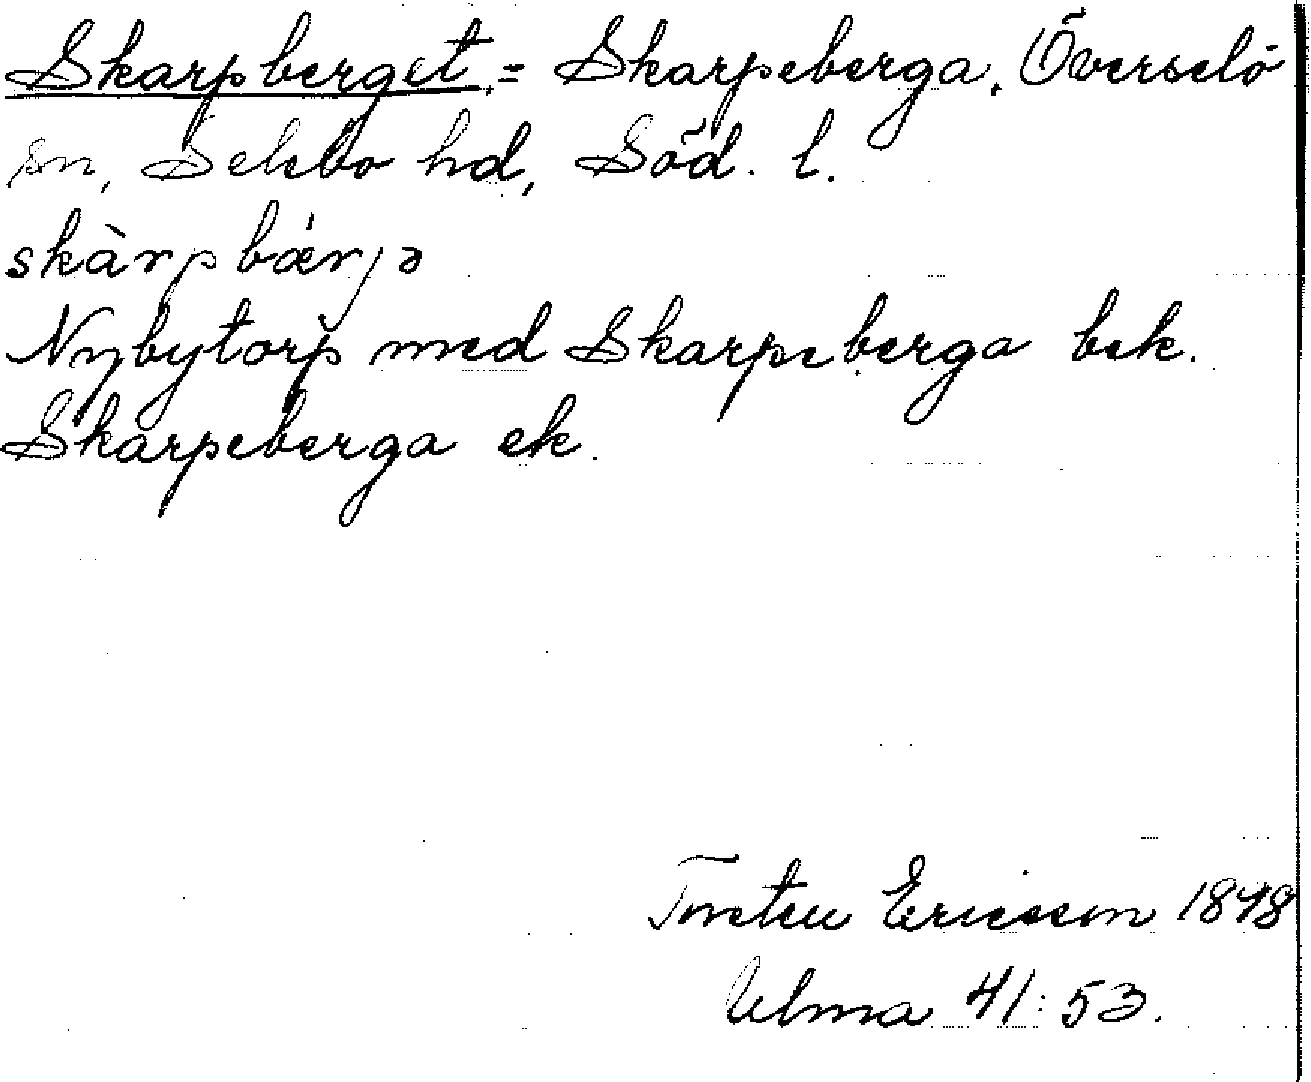 Skarpberget = Skarpeberga, Överselö
sn, Selebo hd, Söd. l.
skàrpbǽrjə
Nybytorp med Skarpeberga bek.
Skarpeberga ek.
Torsten Ericsson 1848
Ulma 41:53.